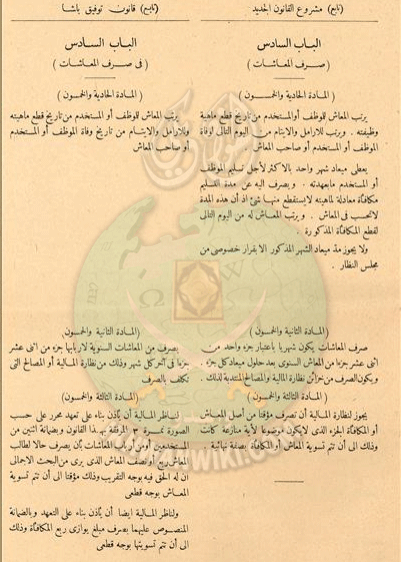 (تابع) مشروع القانون الجديد
الباب السادس
(صرف المعاشات)
(المادة الحادية والخمسون)
يرتب المعاش للموظف أو المستخدم من تاريخ قطع ماهية
وظيفته . ويرتب للارامل والايتام من اليوم التالى لوفاة
الموظف أو المستخدم أو صاحب المعاش
يعطى ميعاد شهر واحد بالاكثر لأجل تسليم الموظف
أو المستخدم مابعهدته . ويصرف اليه عن مدة التسليم
مكافأة معادلة لماهيته لايستقطع منها شئ اذ أن هذه المدة
لاتحسب فى المعاش . ويرتب المعاش له من اليوم التالى
لقطع المكافأة المذكورة .
ولا يجوز مد ميعاد الشهر المذكور الا بقرار خصوصى من
مجلس النظار .
(المادة الثانية والخمسون)
صرف المعاشات يكون شهريا باعتبار جزء واحد من
اثنى عشر جزءا من المعاش السنوى بعد حلول ميعاد كل جزء
ويكون الصرف من خزائن نظارة المالية والمصالح المنتدبة لذلك .
(المادة الثالثة والخمسون)
يجوز لنظارة المالية أن تصرف مؤقتا من أصل المعاش
أو المكافأة الجزء الذى لايكون موضوعا لأية منازعة كانت
وذلك الى أن تتم تسوية المعاش أو المكافأة بصفة نهائية
(تابع) قانون توفيق باشا
الباب السادس
(فى صرف المعاشات)
(المادة الحادية والخمسون)
يرتب المعاش للموظف أو المستخدم من تاريخ قطع ماهيته
وللارامل والايتام من تاريخ وفاة الموظف أو المستخدم
أو صاحب المعاش
(المادة الثانية والخمسون)
يصرف من المعاشات السنوية لاربابها جزء من اثنى عشر
جزءا فى آخر كل شهر وذلك من نظارة المالية أو المصالح التى
تكلف بالصرف
(المادة الثالثة والخمسون)
لناظر المالية أن يأذن بناء على تعهد محرر على حسب
الصورة نمرة ٣ المرفوقة بهذا القانون وبضمانة اثنين من
المستخدمين أو أرباب المعاشات بأن يصرف حالا لطالب
المعاش ربع أو نصف المعاش الذى يرى من البحث الاجمالى
ان له الحق فيه بوجه التقريب وذلك مؤقتا الى أن تتم تسوية
المعاش بوجه قطعى
ولناظر المالية ايضا أن يأذن بناء على التعهد وبالضمانة
المنصوص عليهما بصرف مبلغ يوازى ربع المكافأة وذلك
الى أن تتم تسويتها بوجه قطعى